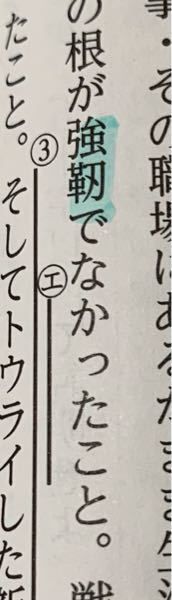 ・その職場にあるがまま生
の根が強靭でなかったこと。戦
③
㋓
たこと。そしてトウライした新